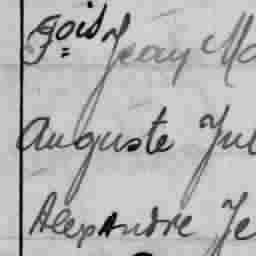 Fçois Jean Ma
Auguste Jul
Alexandre Je